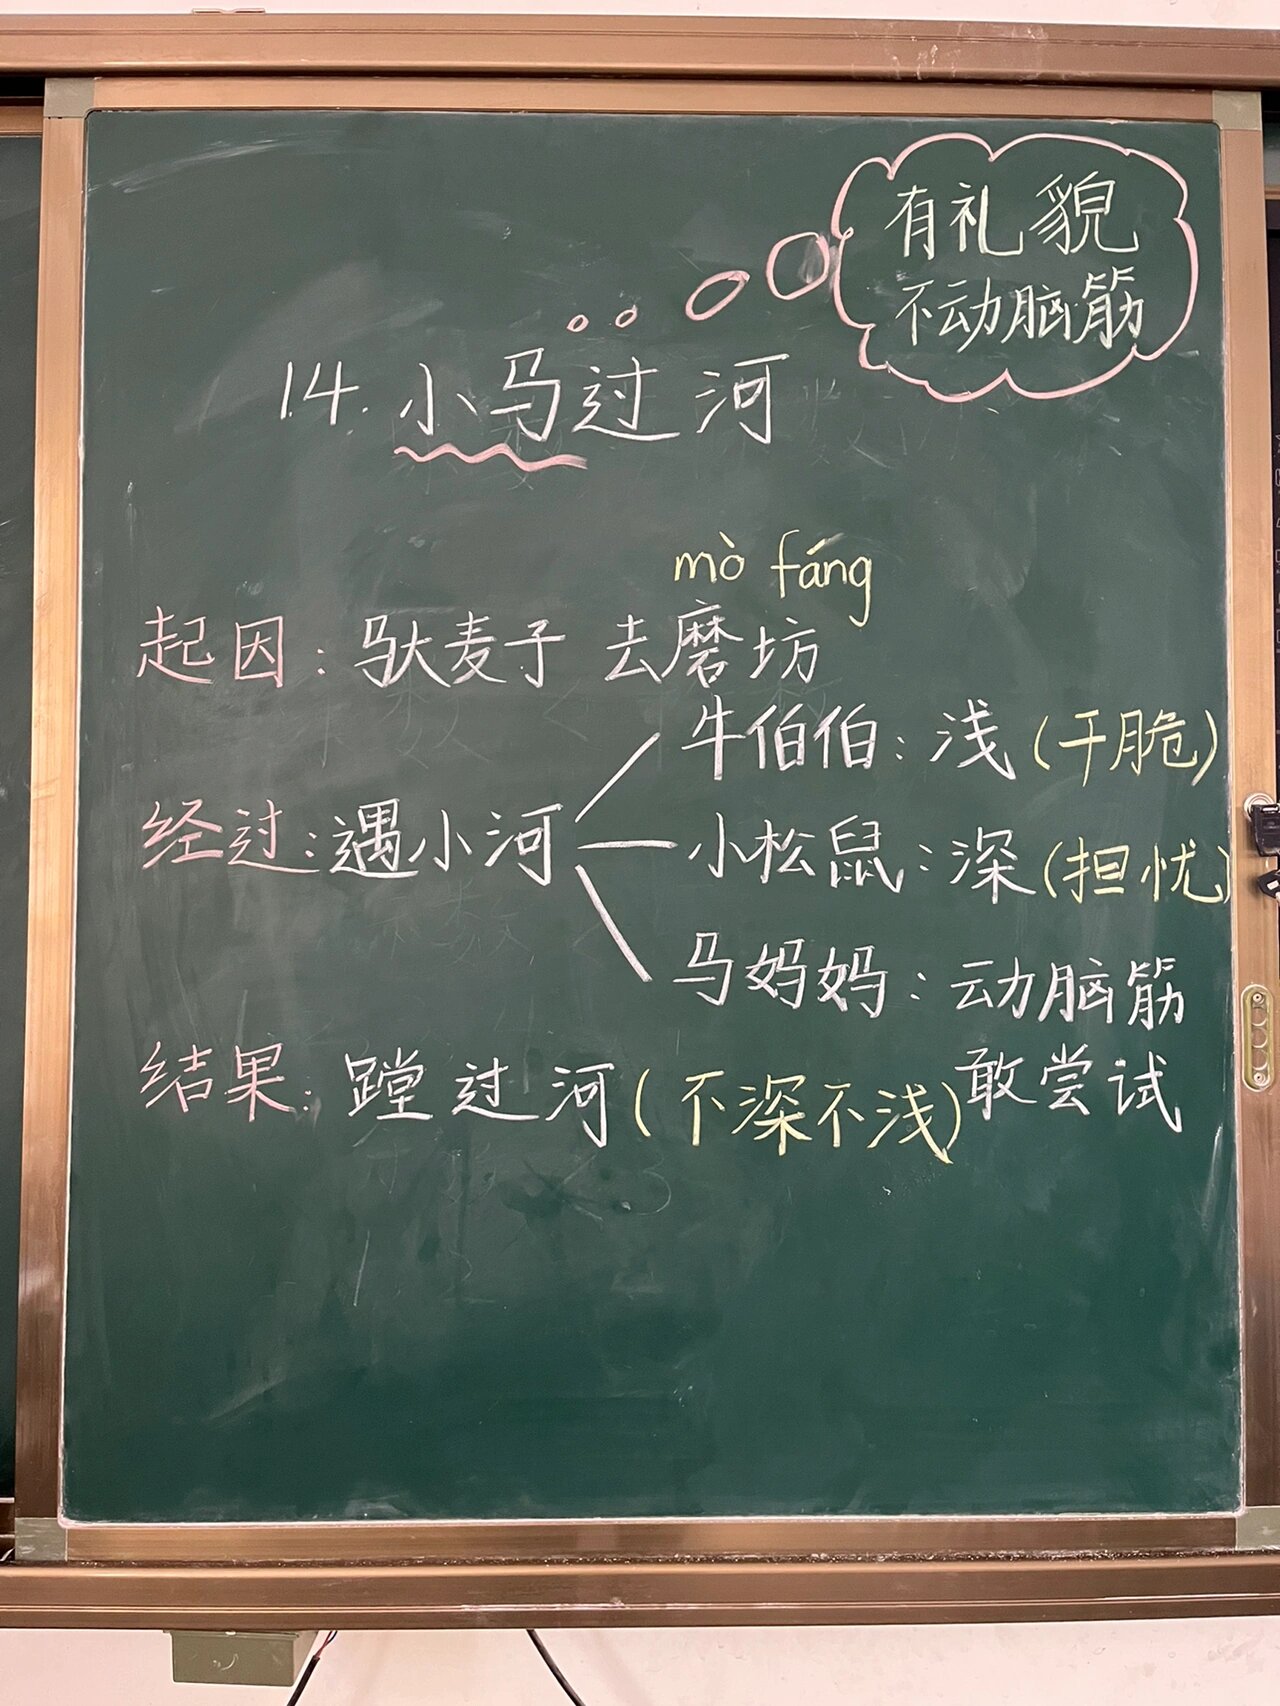 有礼貌
不动脑筋
14.小马过河
mò fáng
起因:驮麦子去磨坊
牛伯伯:浅(干脆)
经过:遇小河
小松鼠:深(担忧)
马妈妈:动脑筋
敢尝试
结果:蹚过河(不深不浅)